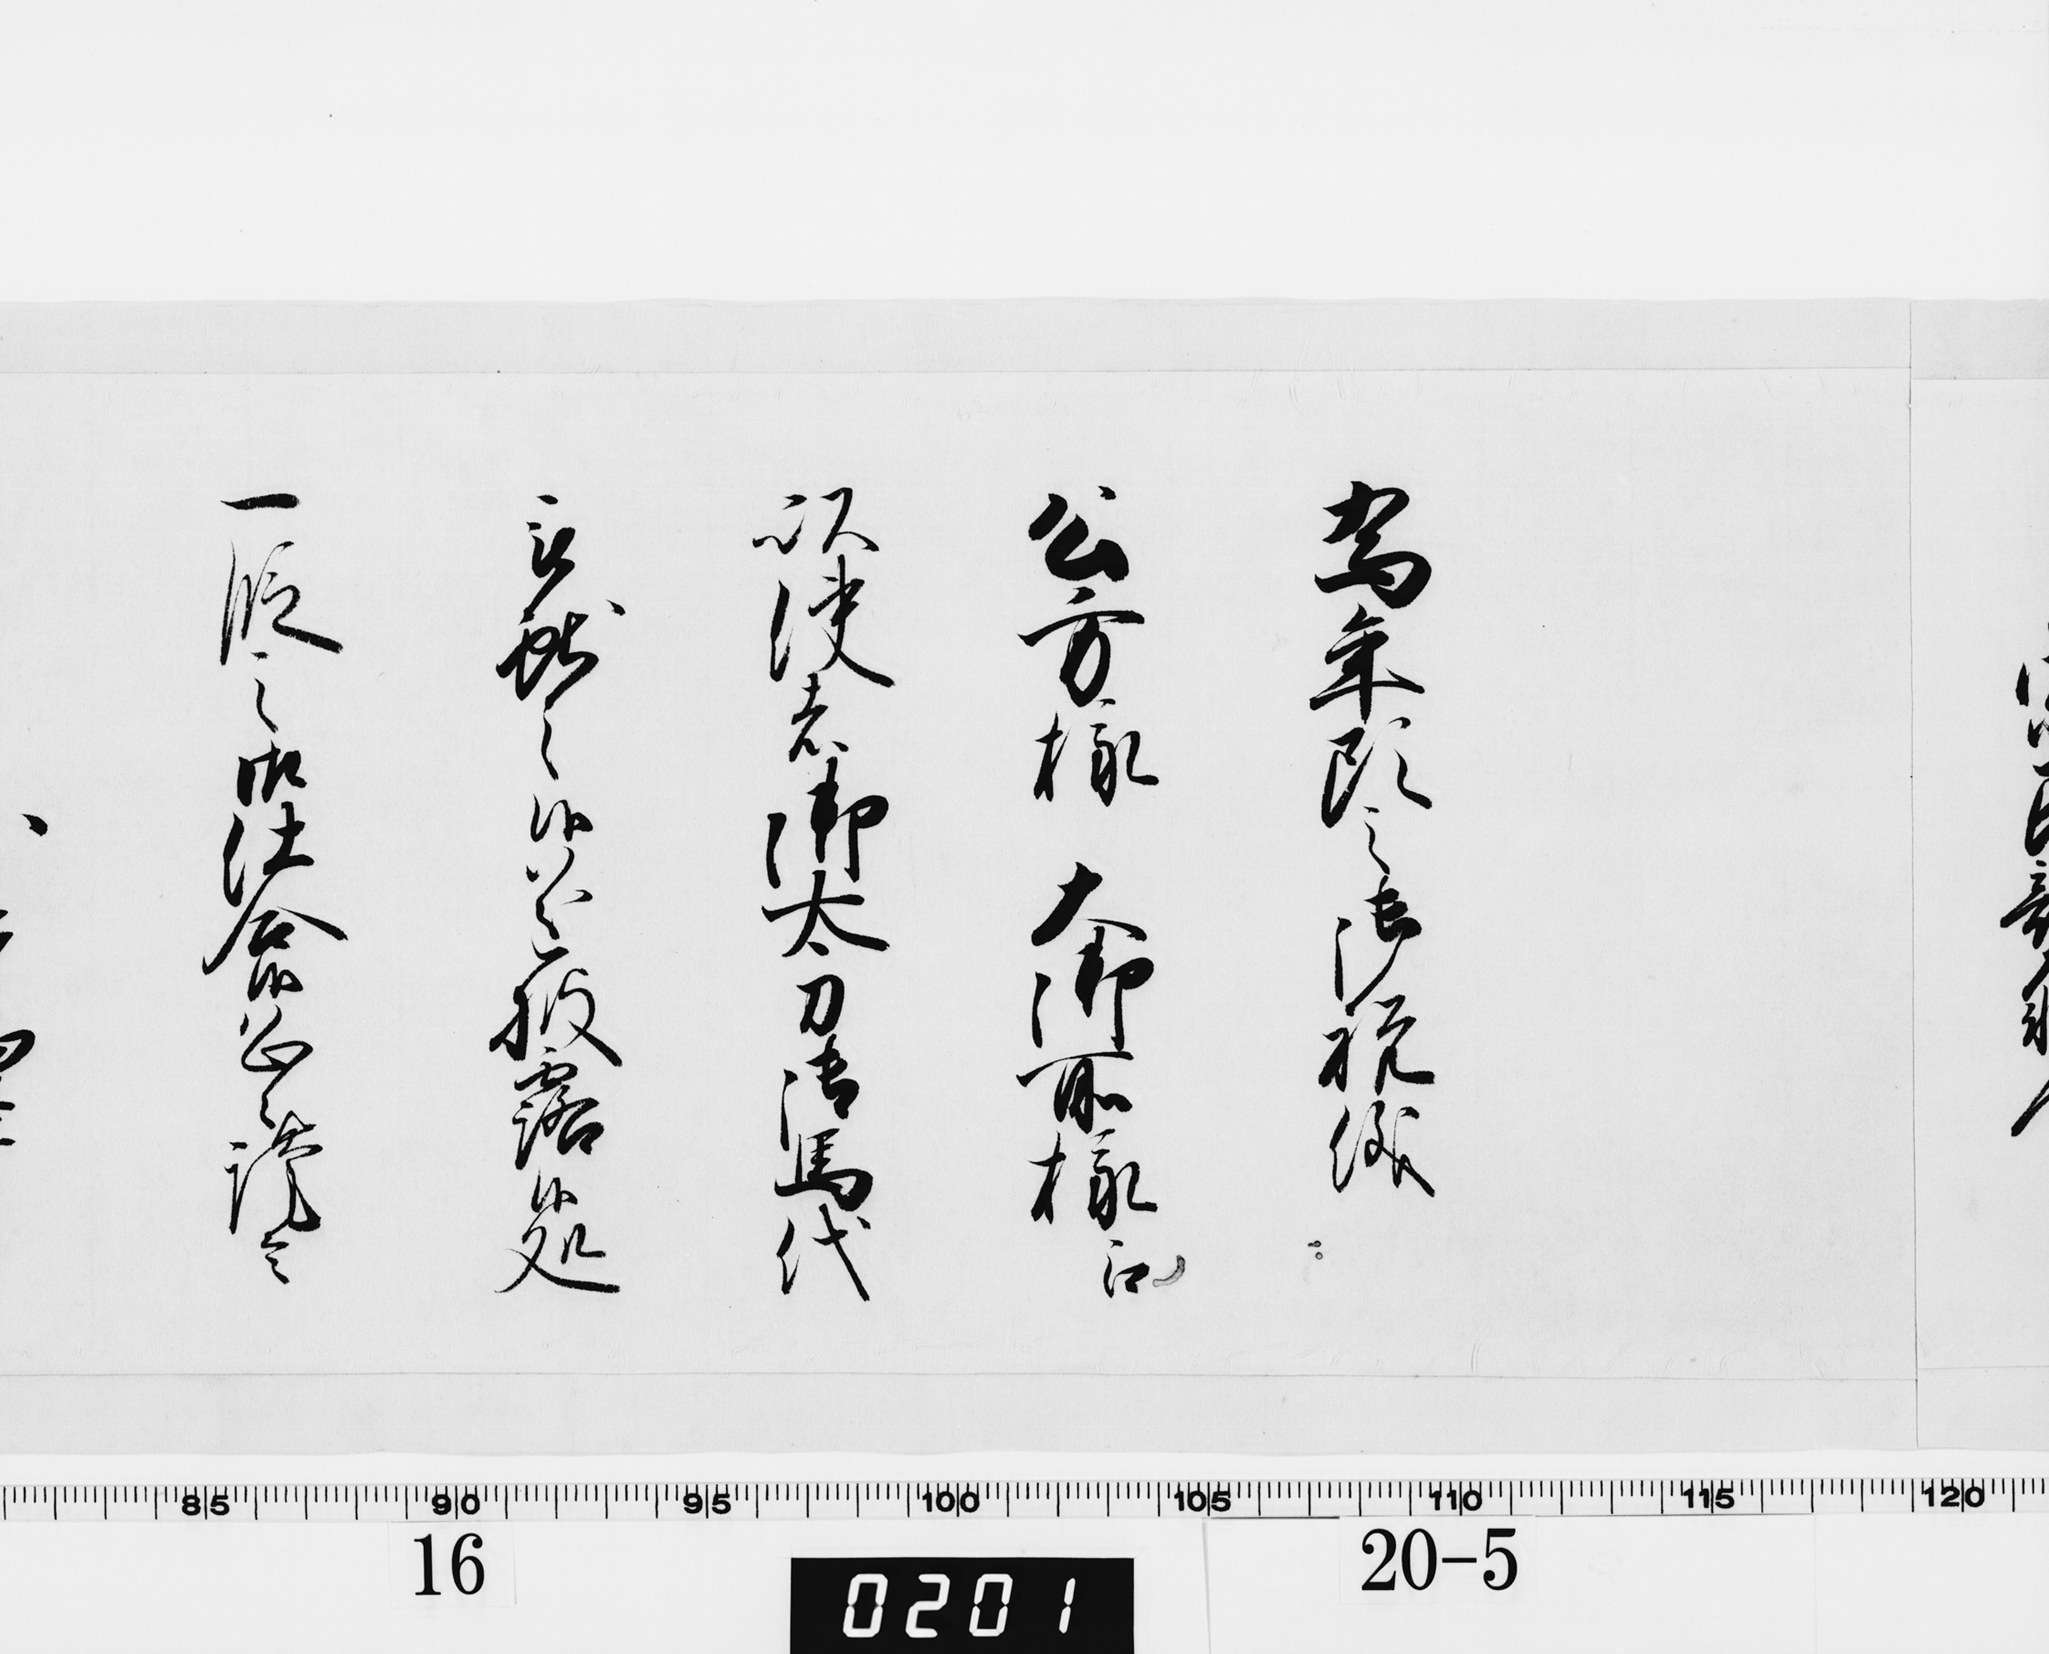 民部
為年頭之御祝儀
公方様　大御所様江
以使者御太刀御馬代
被献之候遂披露候処
一段之御仕合候恐々謹言
85 90 95 100 105 110 115 120
16
20-5
0201